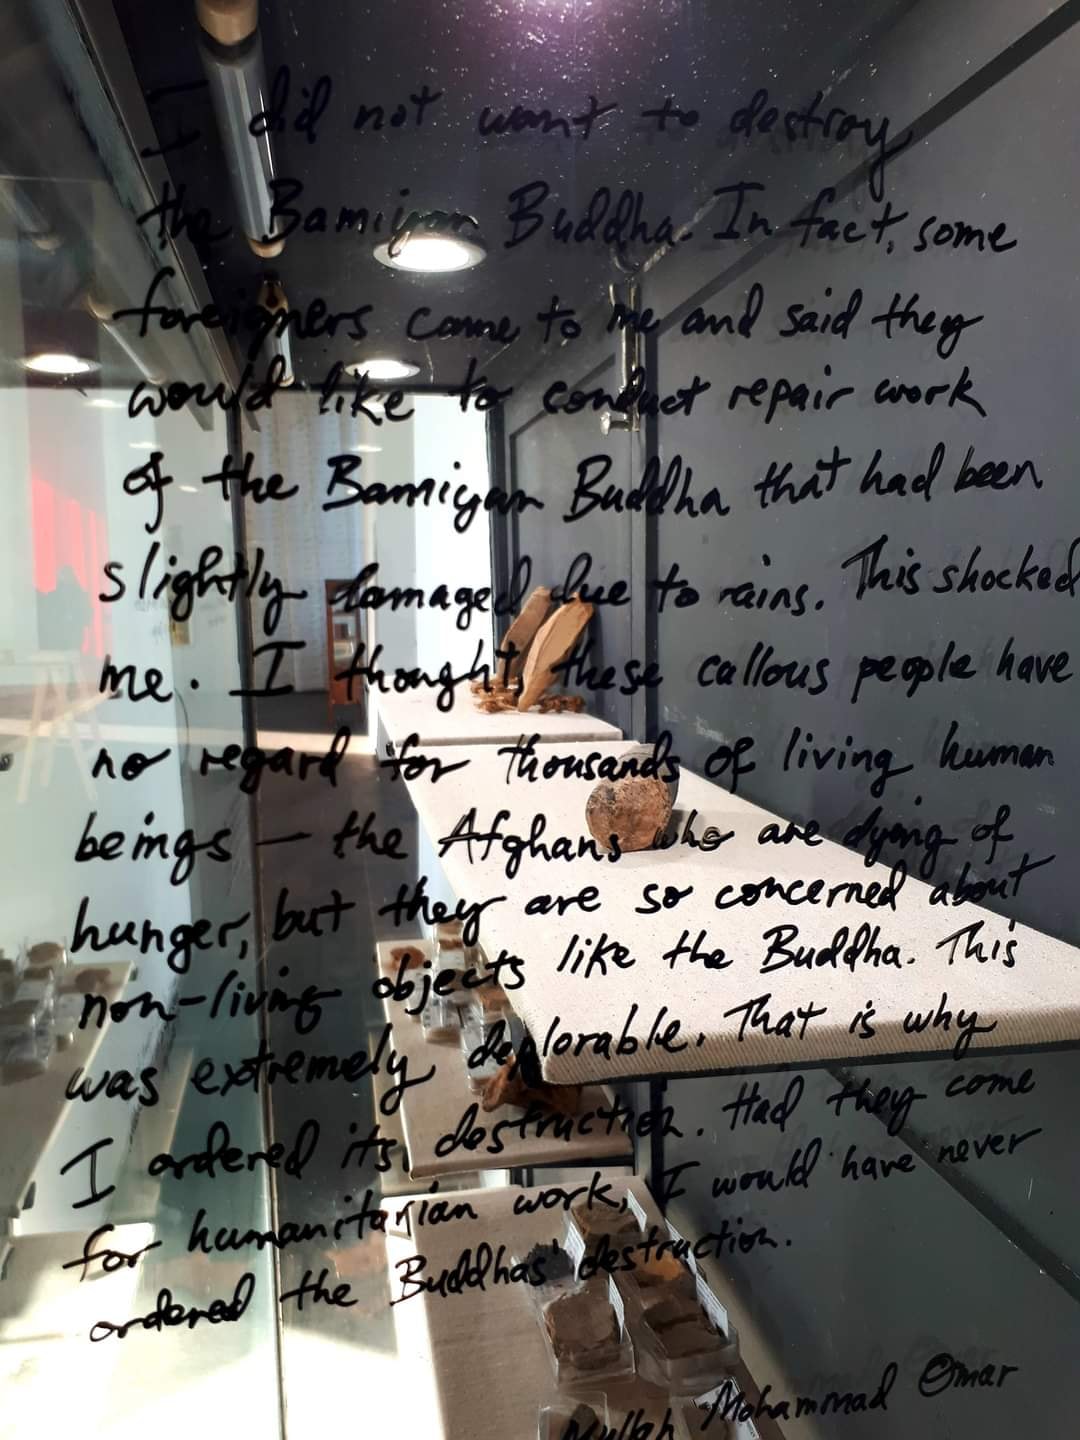 I did not want to destroy
the Bamiyan Buddha. In fact, some
foreigners came to me and said they
would like to conduct repair work
of the Bamiyan Buddha that had been
slightly damaged due to rains. This shocked
me. I thought, these callous people have
no regard for thousands of living human
beings — the Afghans who are dying of
hunger, but they are so concerned about
non-living objects like the Buddha. This
was extremely deplorable. That is why
I ordered its destruction. Had they come
for humanitarian work, I would have never
ordered the Buddhas' destruction.
Mullah Mohammad Omar